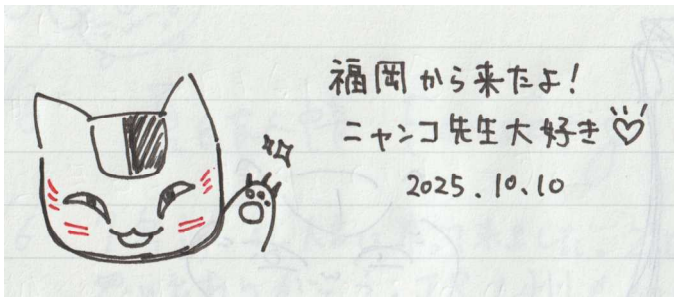 福岡から来たよ!
ニャンコ先生大好き♡
2025.10.10